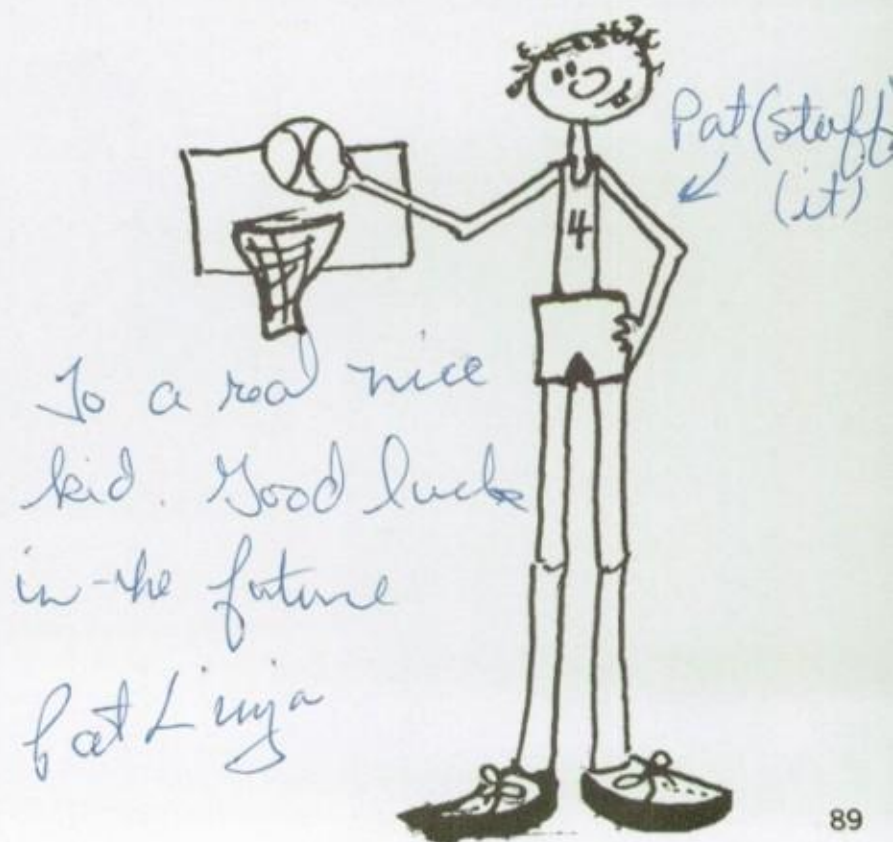 Pat (stuff)
(it)
4
To a real nice
kid. Good luck
in the future
Pat
89